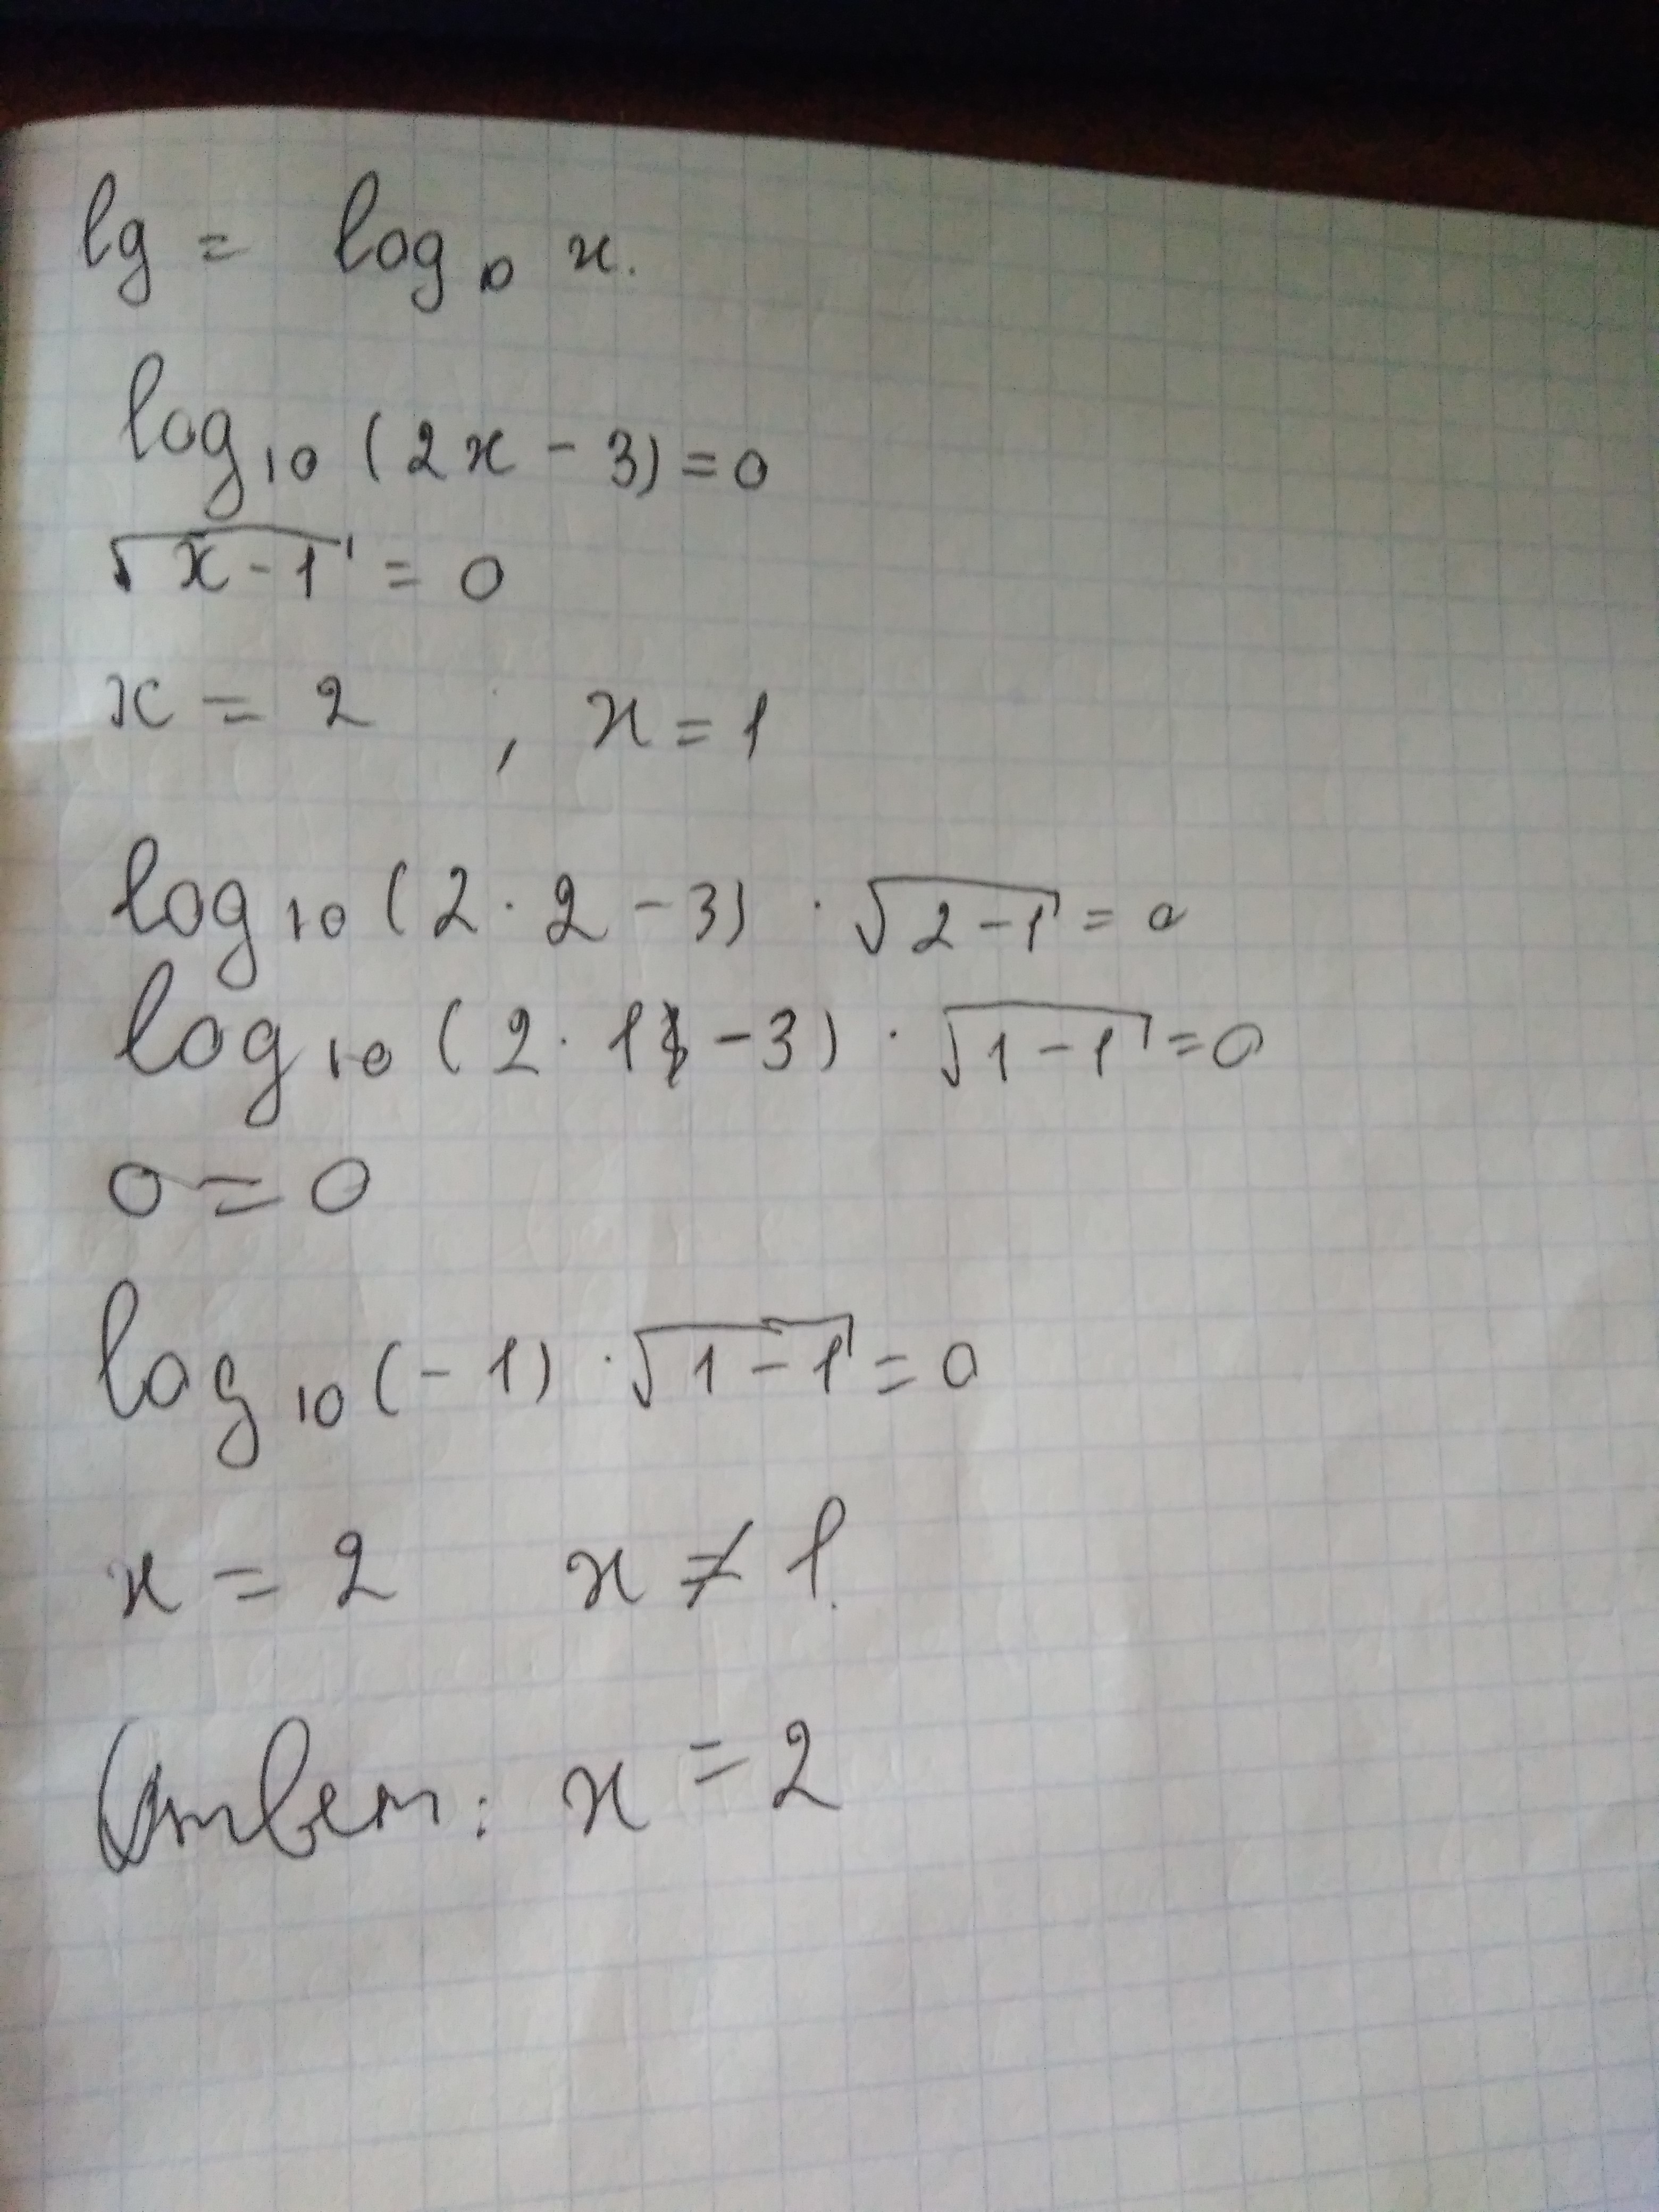 lg = log₁₀ x.
log₁₀ (2x - 3) = 0
√(x-1) = 0
x = 2 , x = 1
log₁₀ (2 · 2 - 3) · √(2-1) = 0
log₁₀ (2 · 1 - 3) · √(1-1) = 0
0 = 0
log₁₀ (-1) · √(1-1) = 0
x = 2 x ≠ 1.
Ответ: x = 2